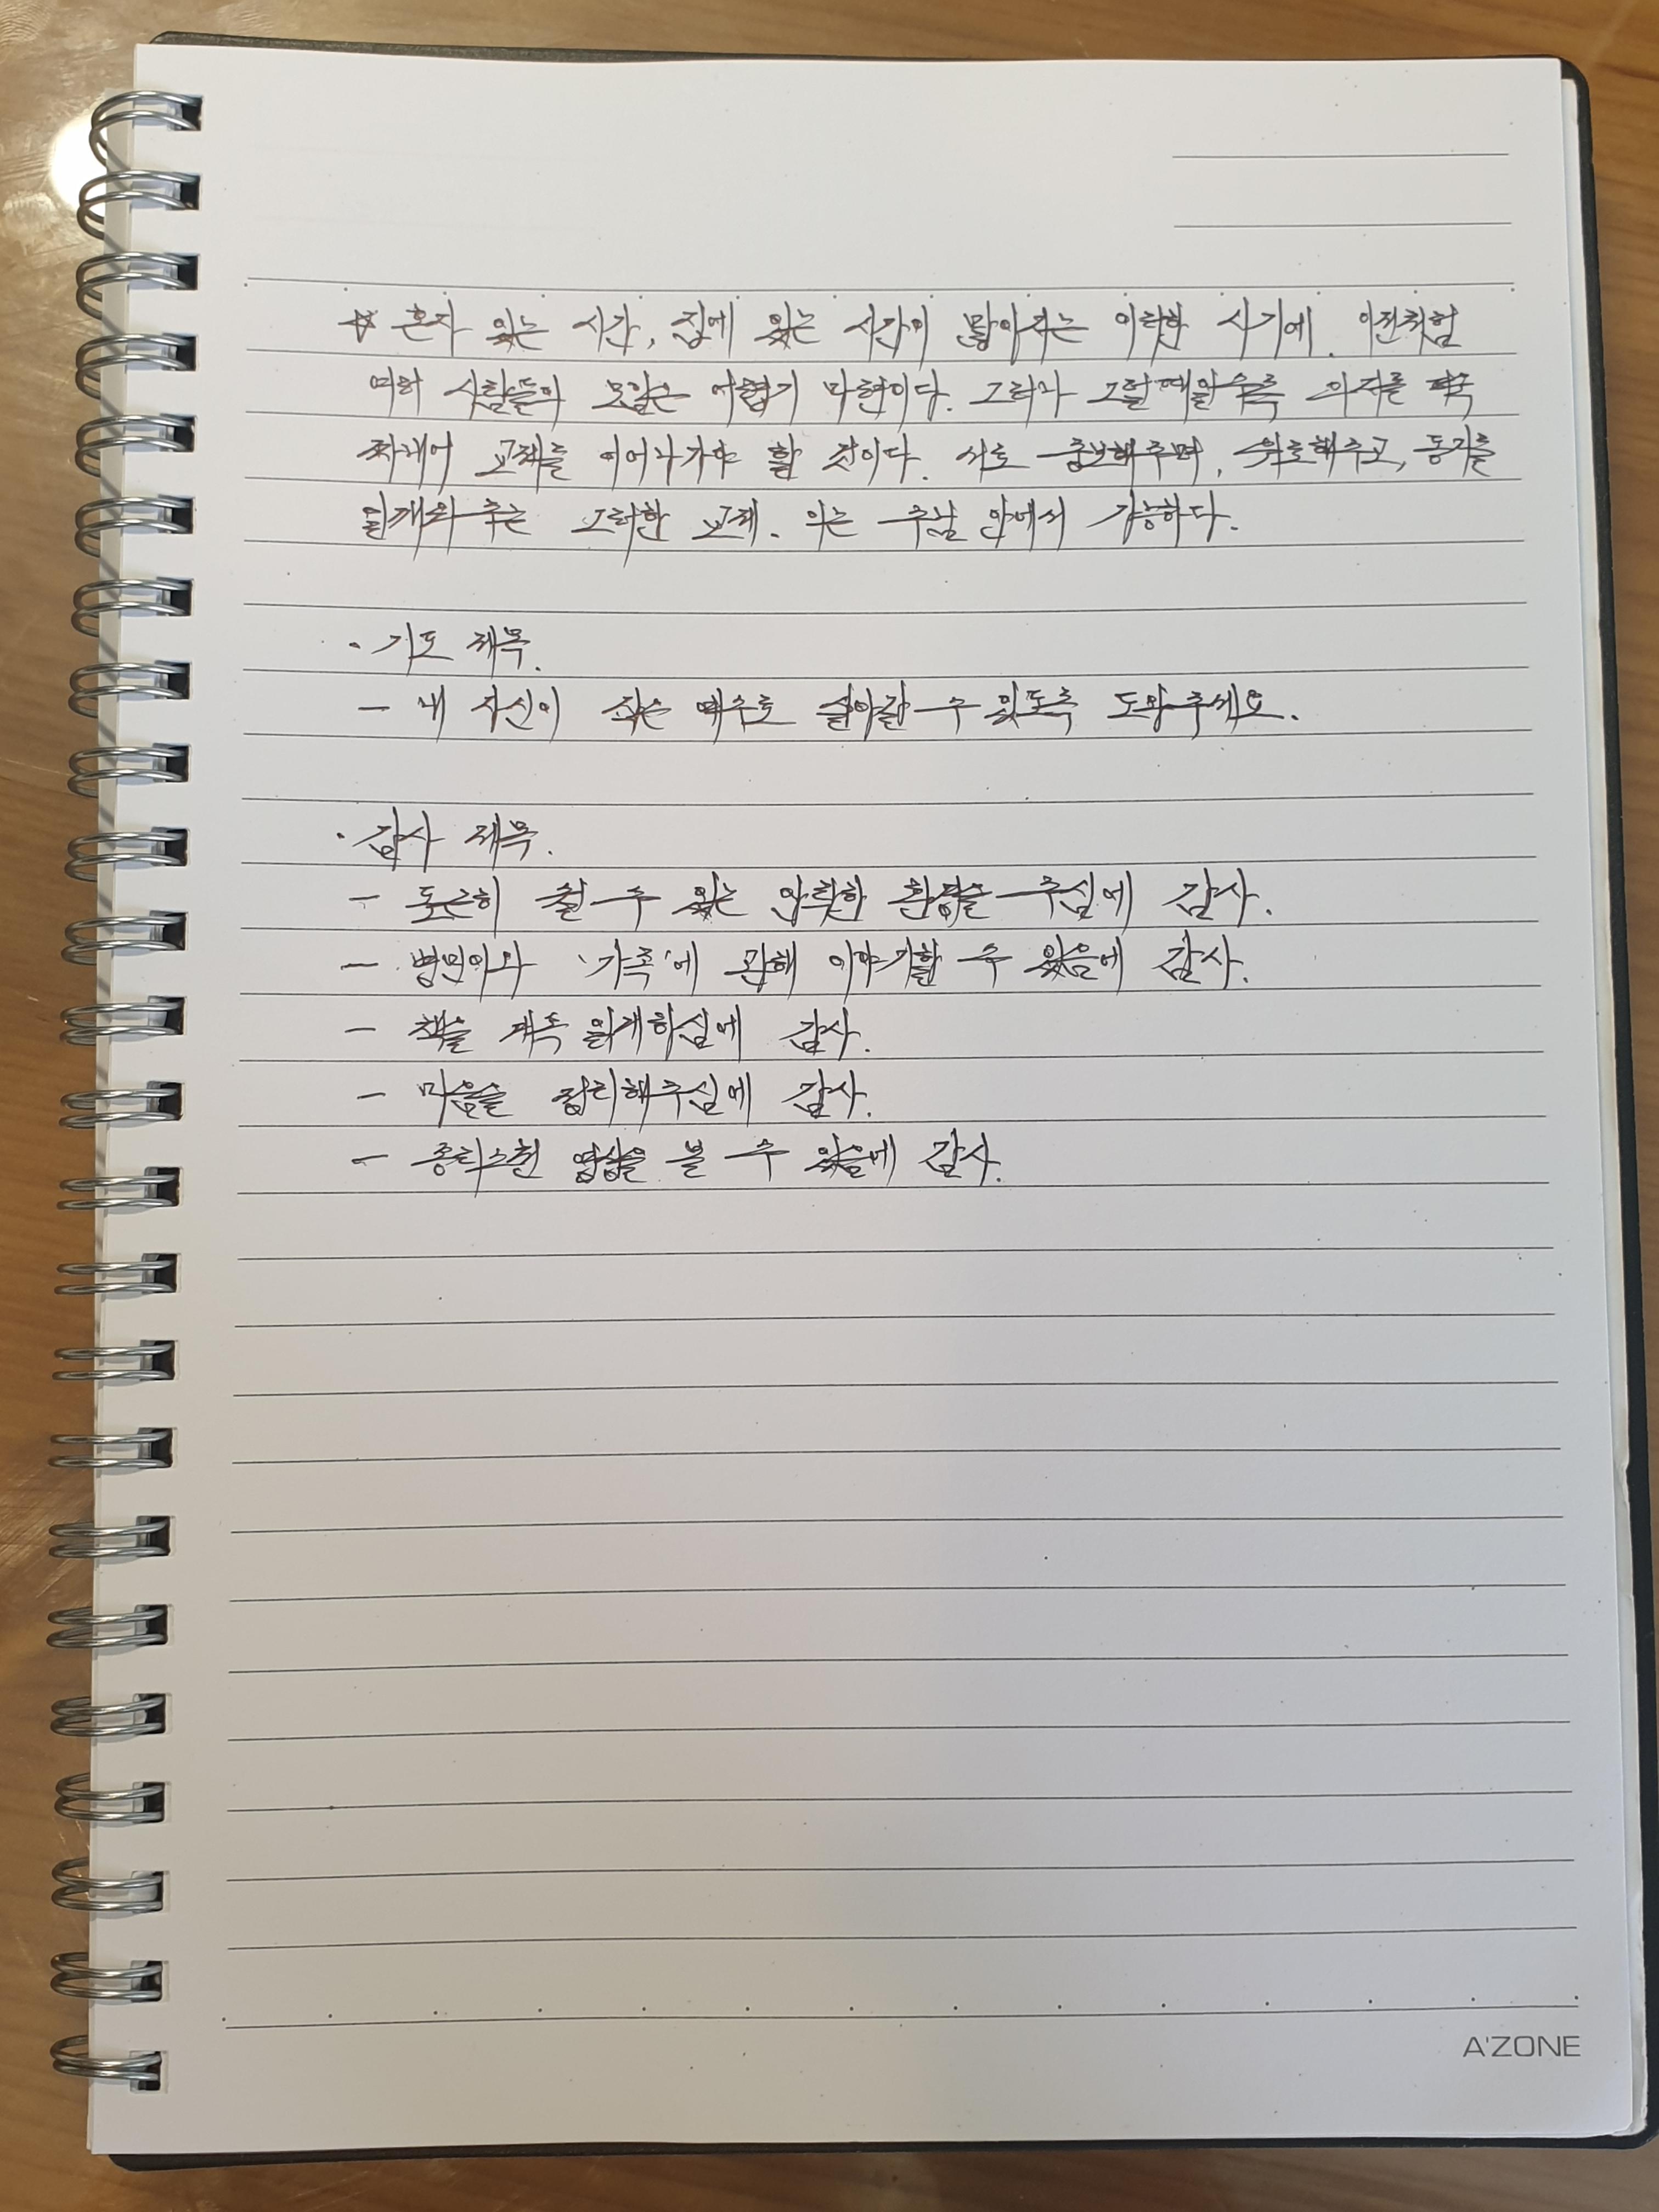 ☆ 혼자 있는 시간, 집에 있는 시간이 많아지는 이러한 시기에. 이전처럼
여러 사람들의 모임은 어렵기 마련이다. 그러나 그럴때일수록 의지를
짜내어 교제를 이어나가야 할 것이다. 서로 중보해주며, 위로해주고, 동기를
일깨워 주는 그러한 교제. 이는 주님 안에서 가능하다.
· 기도 제목.
- 내 자신이 작은 예수로 살아갈 수 있도록 도와주세요.
· 감사 제목.
- 포근히 쉴 수 있는 안락한 환경을 주심에 감사.
- 병민이와 '가족'에 관해 이야기할 수 있음에 감사.
- 책을 계속 읽게하심에 감사.
- 마음을 정리해주심에 감사.
- 영상을 볼 수 있음에 감사.
A'ZONE